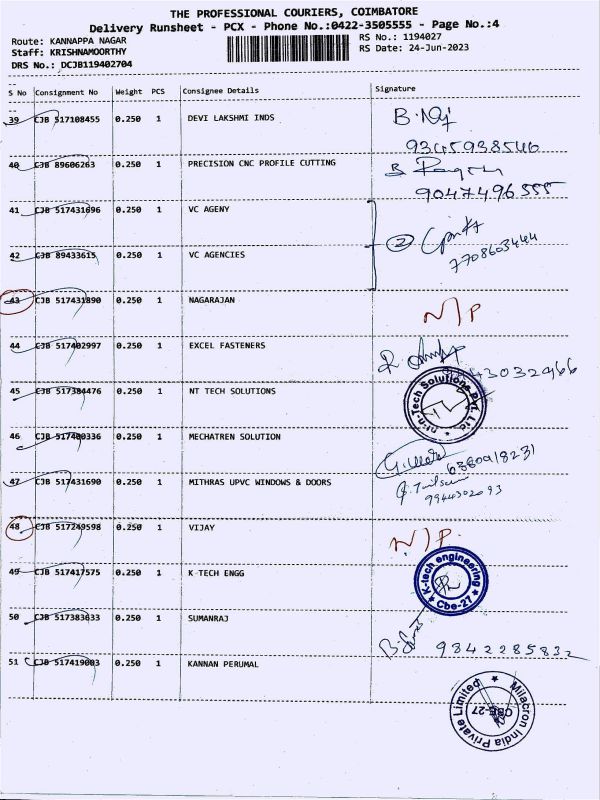 THE PROFESSIONAL COURIERS, COIMBATORE
Delivery Runsheet - PCX - Phone No.:0422-3505555 - Page No.:4
Route: KANNAPPA NAGAR
RS No.: 1194027
Staff: KRISHNAMOORTHY
RS Date: 24-Jun-2023
DRS No.: DCJB119402704
S No Consignment No Weight PCS Consignee Details Signature
39 CJB 517108455 0.250 1 DEVI LAKSHMI INDS
9345938546
40 CJB 89606263 0.250 1 PRECISION CNC PROFILE CUTTING
9047496555
41 CJB 517431696 0.250 1 VC AGENY
2
7708603444
42 CJB 89433615 0.250 1 VC AGENCIES
43 CJB 517431890 0.250 1 NAGARAJAN N/P
44 CJB 517402997 0.250 1 EXCEL FASTENERS
45 CJB 517384476 0.250 1 NT TECH SOLUTIONS
46 CJB 517400336 0.250 1 MECHATREN SOLUTION
6380918231
47 CJB 517431690 0.250 1 MITHRAS UPVC WINDOWS & DOORS
9944302093
48 CJB 517249598 0.250 1 VIJAY N/P.
49 CJB 517417575 0.250 1 K-TECH ENGG
K-tech engineering
Cbe-27
50 CJB 517383633 0.250 1 SUMANRAJ
9842285832
51 CJB 517419003 0.250 1 KANNAN PERUMAL
Milacron India Private Limited
CBE-27